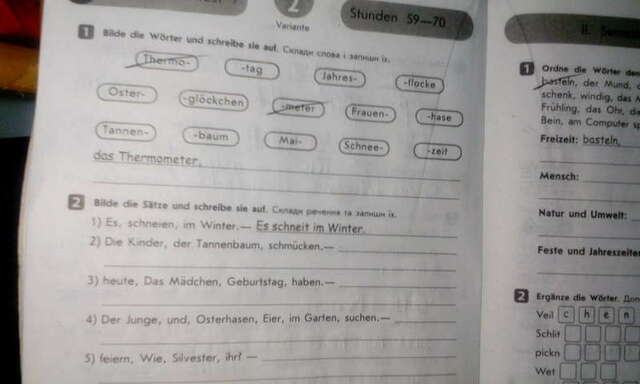 2
Variante
Stunden 59—70
1 Bilde die Wörter und schreibe sie auf. Склади слова і запиши їх.
Thermo- -tag Jahres- -flocke
Oster- -glöckchen -meter Frauen- -hase
Tannen- -baum Mai- Schnee- -zeit
das Thermometer,
2 Bilde die Sätze und schreibe sie auf. Склади речення та запиши їх.
1) Es, schneien, im Winter.— Es schneit im Winter.
2) Die Kinder, der Tannenbaum, schmücken.—
3) heute, Das Mädchen, Geburtstag, haben.—
4) Der Junge, und, Osterhasen, Eier, im Garten, suchen.—
5) feiern, Wie, Silvester, ihr? —
II.
1 Ordne die Wörter
basteln, der Mund,
schenk, windig, das
Frühling, das Ohr, die
Bein, am Computer
Freizeit: basteln,
Mensch:
Natur und Umwelt:
Feste und Jahreszeiten
2 Ergänze die Wörter.
Veil c h e n
Schlit
pickn
Wet